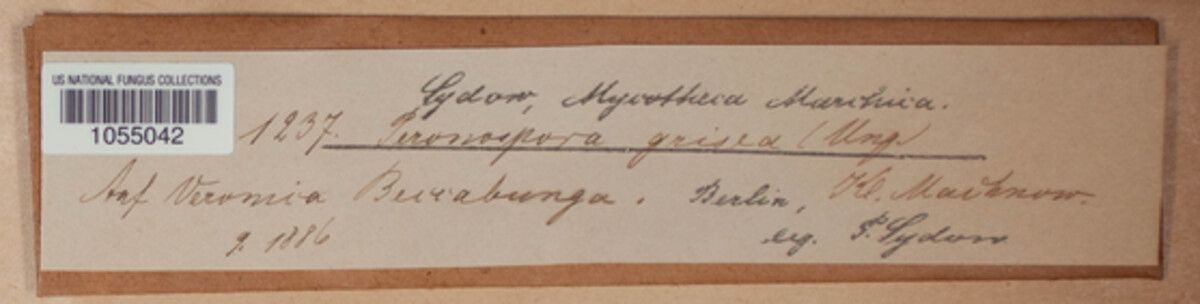 US NATIONAL FUNGUS COLLECTIONS
1055042
Sydow, Mycotheca Marchica.
1237. Peronospora grisea (Ung)
Auf Veronica Beccabunga. Berlin, Kl. Machnow.
9. 1886 leg. P. Sydow